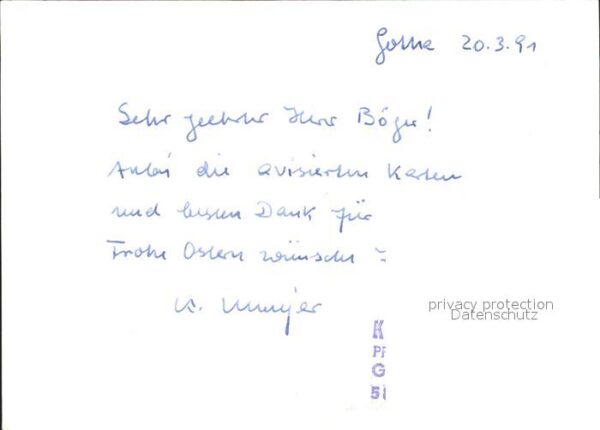 Gotha 20.3.91
Sehr geehrter Herr Böger!
Anbei die avisierten Karten
und besten Dank für
Frohe Ostern wünscht
privacy protection
Datenschutz
K
PF
G
51